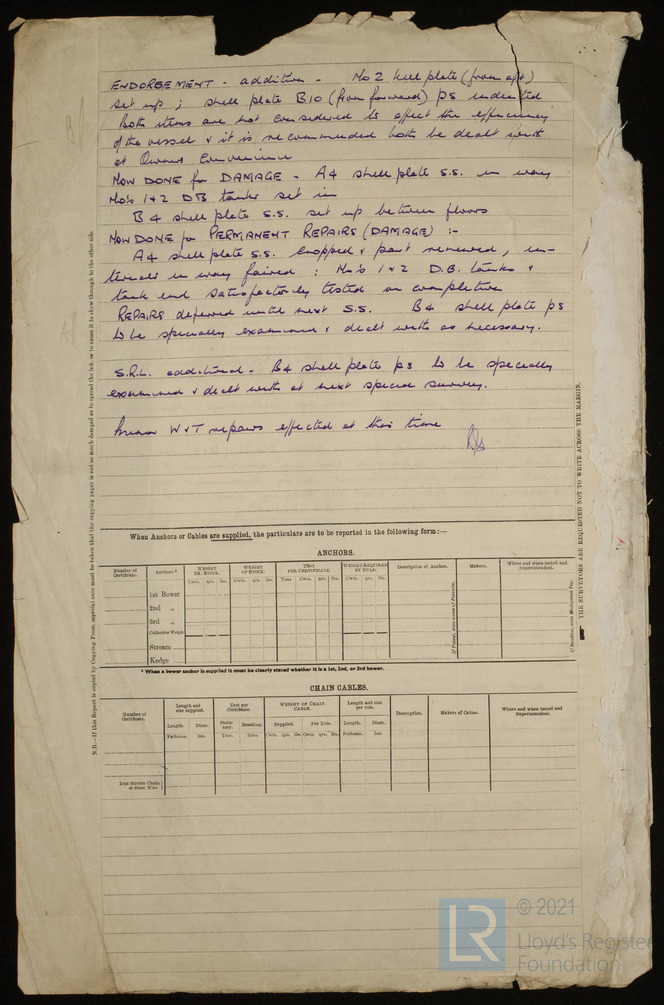 ENDORSEMENT - addition - No 2 keel plate (from aft)
set up ; shell plate B10 (from forward) PS indented
Both items are not considered to affect the efficiency
of the vessel & it is recommended both be dealt with
at Owners Convenience
NOW DONE for DAMAGE - A4 shell plate S.S. in way
No's 1 & 2 DB tanks set in
B4 shell plate S.S. set up between floors
NOW DONE for PERMANENT REPAIRS (DAMAGE) :-
A4 shell plate S.S. cropped & part renewed, in-
ternals in way faired : No's 1 & 2 D.B. tanks &
tank end satisfactorily tested on completion
REPAIRS deferred until next S.S. B4 shell plate PS
to be specially examined & dealt with as necessary.
S.R.L. additional - B4 shell plate ps to be specially
examined & dealt with at next special survey.
Minor W & T repairs effected at this time
When Anchors or Cables are supplied, the particulars are to be reported in the following form :—
ANCHORS.
Number of Certificate. Anchors.* WEIGHT EX. STOCK. WEIGHT OF STOCK. TEST PER CERTIFICATE. WEIGHT REQUIRED BY RULE. Description of Anchor. Makers. Where and when tested and Superintendent.
Cwts. qrs. lbs. Cwts. qrs. lbs. Tons Cwts. qrs. lbs. Cwts. qrs. lbs.
1st Bower
2nd „
3rd „
Collective Weight
Stream
Kedge
If Patent, state name of Patentee.
* When a bower anchor is supplied it must be clearly stated whether it is a 1st, 2nd, or 3rd bower.
CHAIN CABLES.
Number of Certificate. Length and size supplied. Test per Certificate. WEIGHT OF CHAIN CABLE. Length and size per rule. Description. Makers of Cables. Where and when tested and Superintendent.
Length. Diam. Statutory. Breaking. Supplied. Per Rule. Length. Diam.
Fathoms. Ins. Tons. Tons. Cwts. qrs. lbs. Cwts. qrs. lbs. Fathoms. Ins.
Stream Chain or Steel Wire
N.B.—If this Report is copied by Copying Press, especial care must be taken that the copying paper is not so much damped as to spread the ink, or to cause it to show through to the other side.
THE SURVEYORS ARE REQUESTED NOT TO WRITE ACROSS THE MARGIN.
LR
© 2021
Lloyd's Register
Foundation